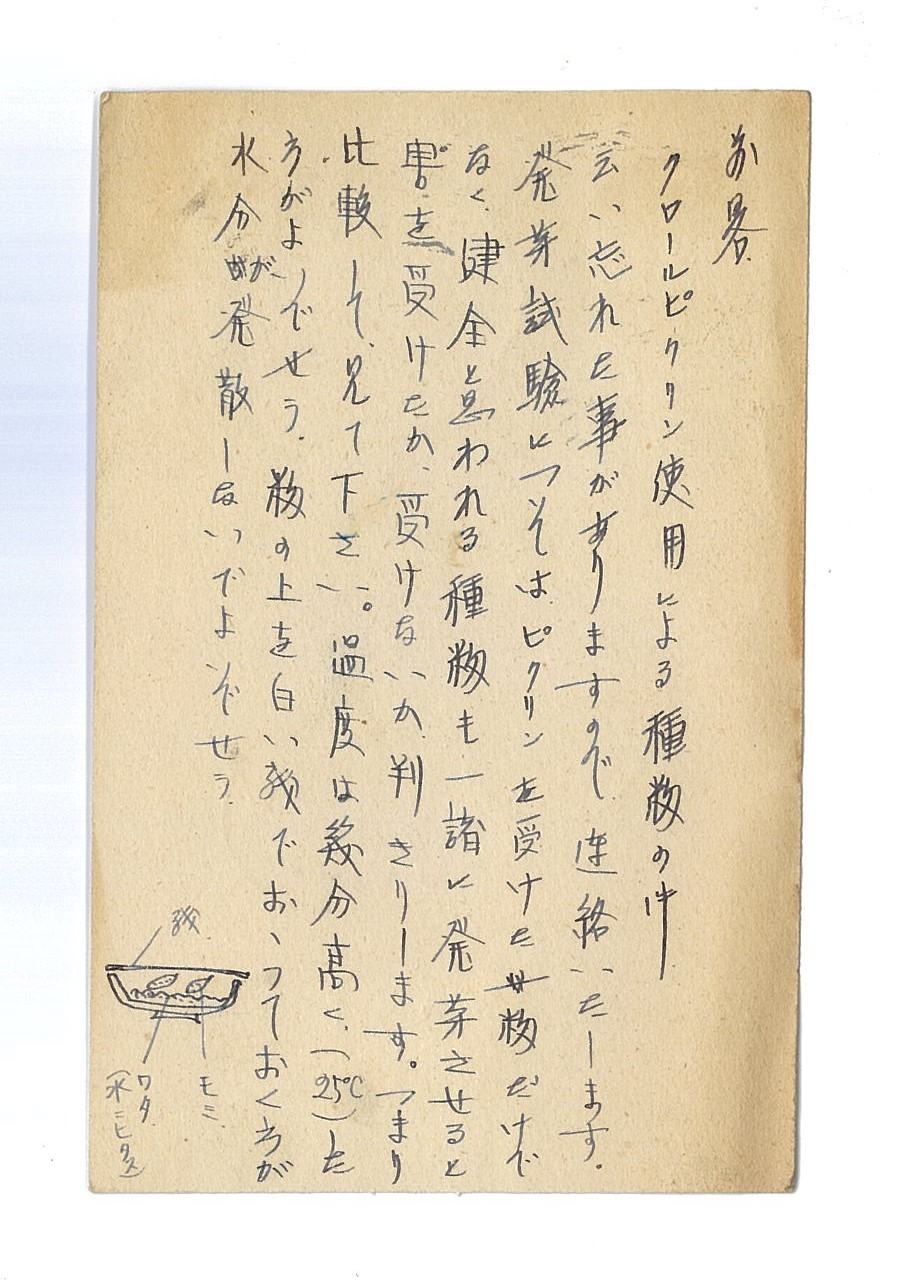 前略
クロールピクリン使用による種籾の件
云い忘れた事がありますので連絡いたします。
発芽試験については、ピクリンを受けた籾だけで
なく、健全と思われる種籾も一諸に発芽させると
害を受けたか、受けないか、判きりします。つまり
比較して見て下さい。温度は幾分高く、(25℃)した
方がよいでせう。籾の上を白い紙でおゝっておくうが
水分が発散しないでよいでせう
紙
モミ
ワタ
(水ニヒタス)